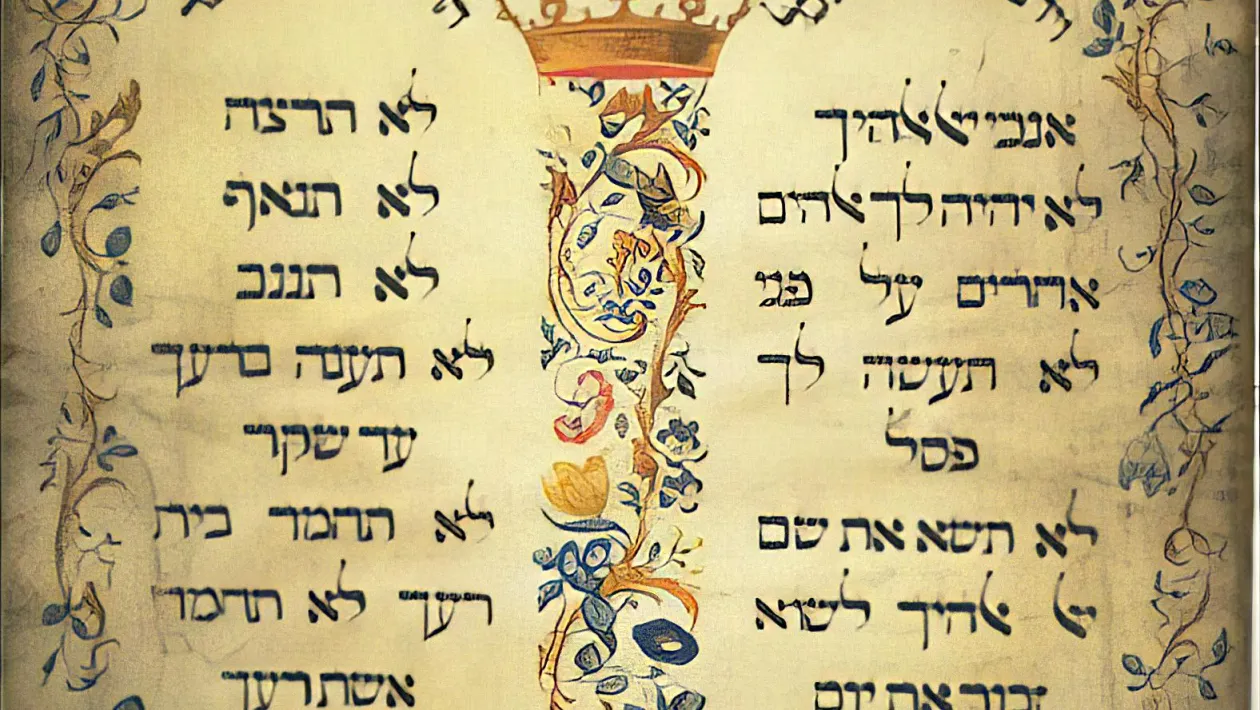 אנכי יי אלהיך
לא יהיה לך אלהים
אחרים על פני
לא תעשה לך
פסל
לא תשא את שם
יי אלהיך לשוא
זכור את יום
לא תרצח
לא תנאף
לא תגנב
לא תענה ברעך
עד שקר
לא תחמד בית
רעך לא תחמד
אשת רעך